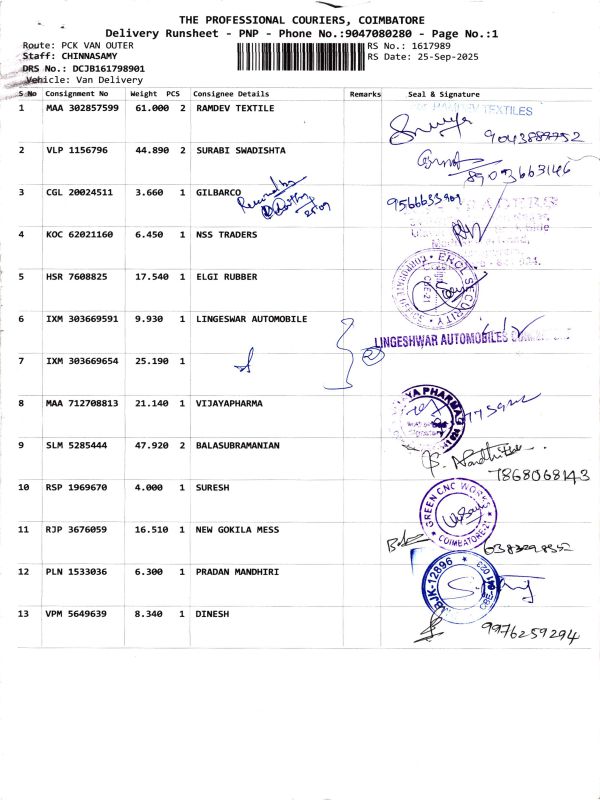 THE PROFESSIONAL COURIERS, COIMBATORE
Delivery Runsheet - PNP - Phone No.:9047080280 - Page No.:1
Route: PCK VAN OUTER RS No.: 1617989
Staff: CHINNASAMY RS Date: 25-Sep-2025
DRS No.: DCJB161798901
Vehicle: Van Delivery
S No Consignment No Weight PCS Consignee Details Remarks Seal & Signature
1 MAA 302857599 61.000 2 RAMDEV TEXTILE
TEXTILES
2 VLP 1156796 44.890 2 SURABI SWADISHTA
8903663146
3 CGL 20024511 3.660 1 GILBARCO
4 KOC 62021160 6.450 1 NSS TRADERS
5 HSR 7608825 17.540 1 ELGI RUBBER
SECURITY
CBE-21
6 IXM 303669591 9.930 1 LINGESWAR AUTOMOBILE
LINGESHWAR AUTOMOBILES
7 IXM 303669654 25.190 1
8 MAA 712708813 21.140 1 VIJAYAPHARMA
PHARMA
9 SLM 5285444 47.920 2 BALASUBRAMANIAN
7868068143
10 RSP 1969670 4.000 1 SURESH
GREEN CNC WORKS
COIMBATORE-21
11 RJP 3676059 16.510 1 NEW GOKILA MESS
12 PLN 1533036 6.300 1 PRADAN MANDHIRI
BJK-12896
13 VPM 5649639 8.340 1 DINESH
9976259294